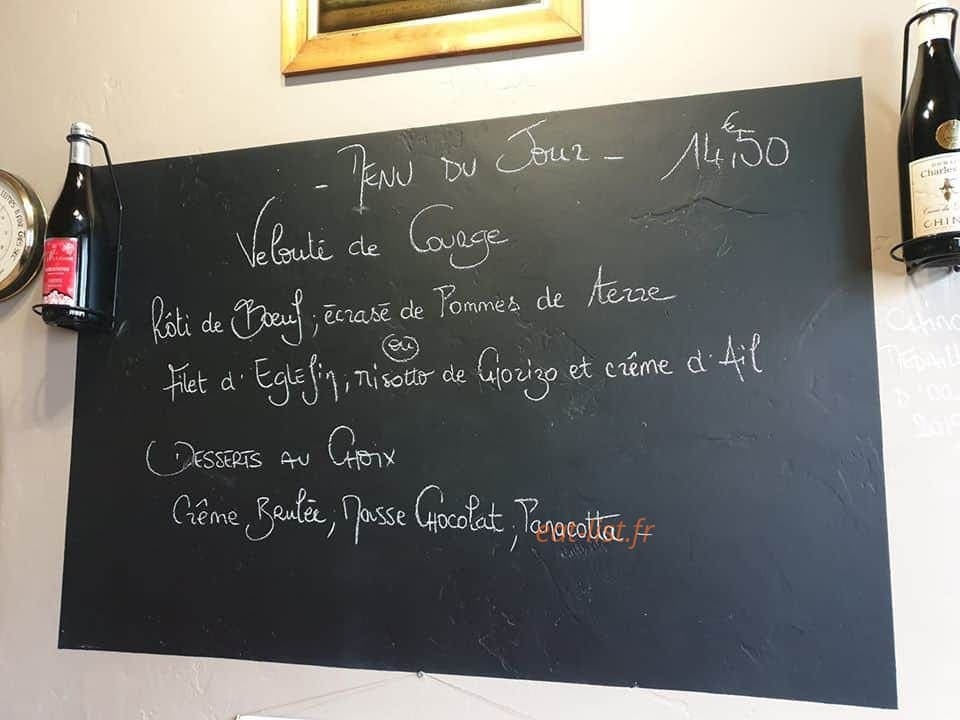 - MENU DU JOUR - 14,50 €
Velouté de Courge
Rôti de Boeuf, écrasé de Pommes de terre
ou
Filet d'Eglefin, risotto de Chorizo et crême d'Ail
DESSERTS AU CHOIX
Crême Brulée, Mousse Chocolat, Panacotta -
Charles
CHIN
2019